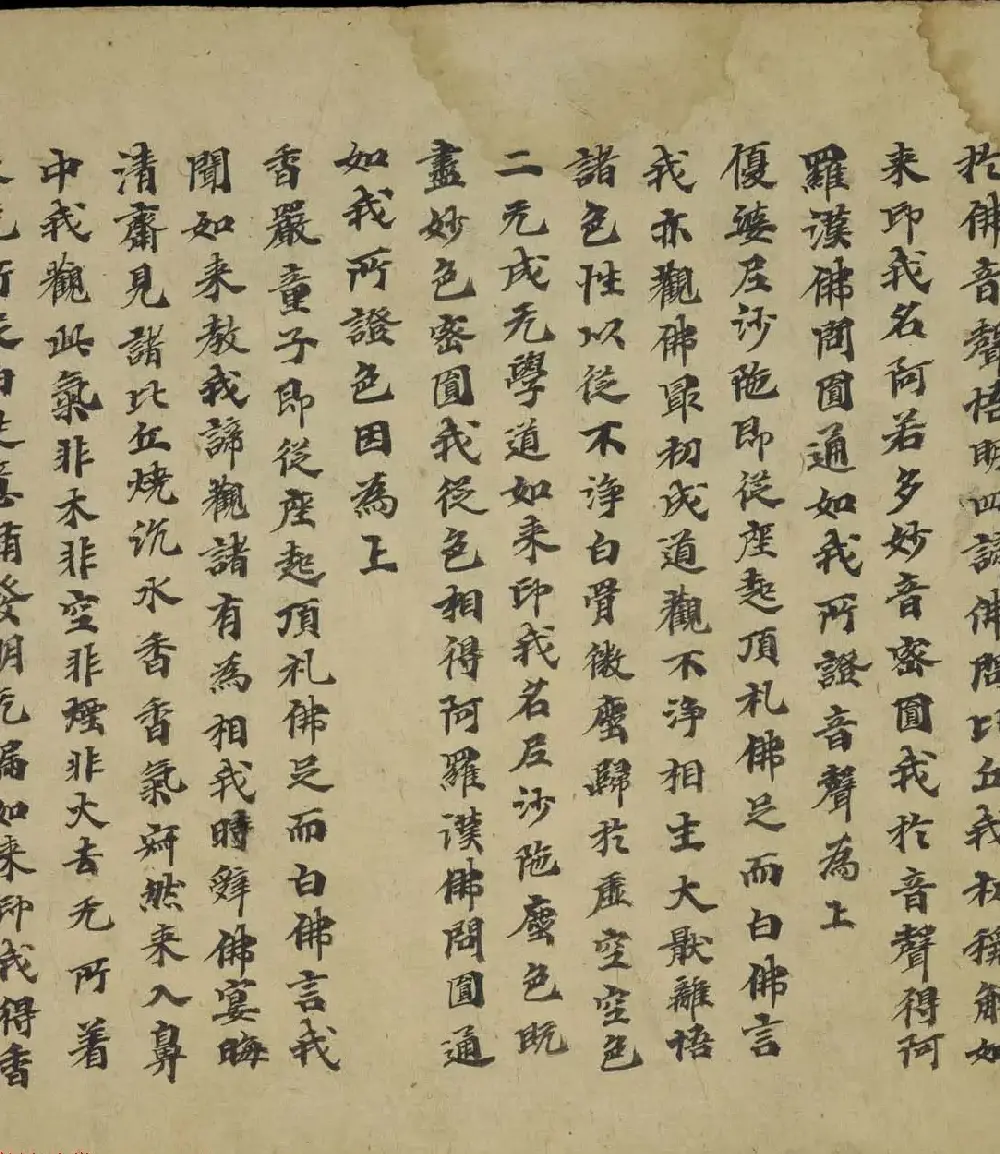 於佛音聲悟明四諦佛問比丘我初稱解如
来印我名阿若多妙音密圓我於音聲得阿
羅漢佛問圓通如我所證音聲為上
優婆尼沙陁即從座起頂礼佛足而白佛言
我亦觀佛冣初成道觀不淨相生大猒離悟
諸色性以從不淨白骨微塵歸於虛空空色
二无成无學道如来印我名尼沙陁塵色既
盡妙色密圓我從色相得阿羅漢佛問圓通
如我所證色因為上
香嚴童子即從座起頂礼佛足而白佛言我
聞如来教我諦觀諸有為相我時辝佛宴晦
清齋見諸比丘燒沉水香香氣寂然来入鼻
中我觀此氣非木非空非煙非火去无所着
来无所從由是意銷發明无漏如来印我得香